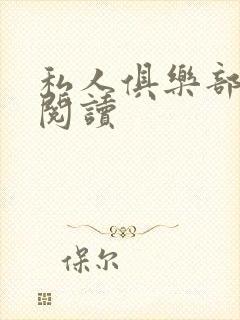 私人俱樂部
閱讀
保尔